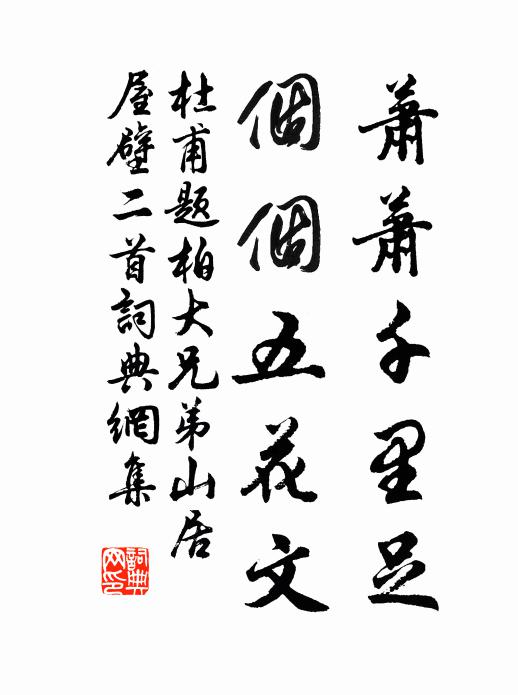 蕭蕭千里足
個個五花文
杜甫题柏大兄弟山居
屋壁二首詞典網集
詞典网印